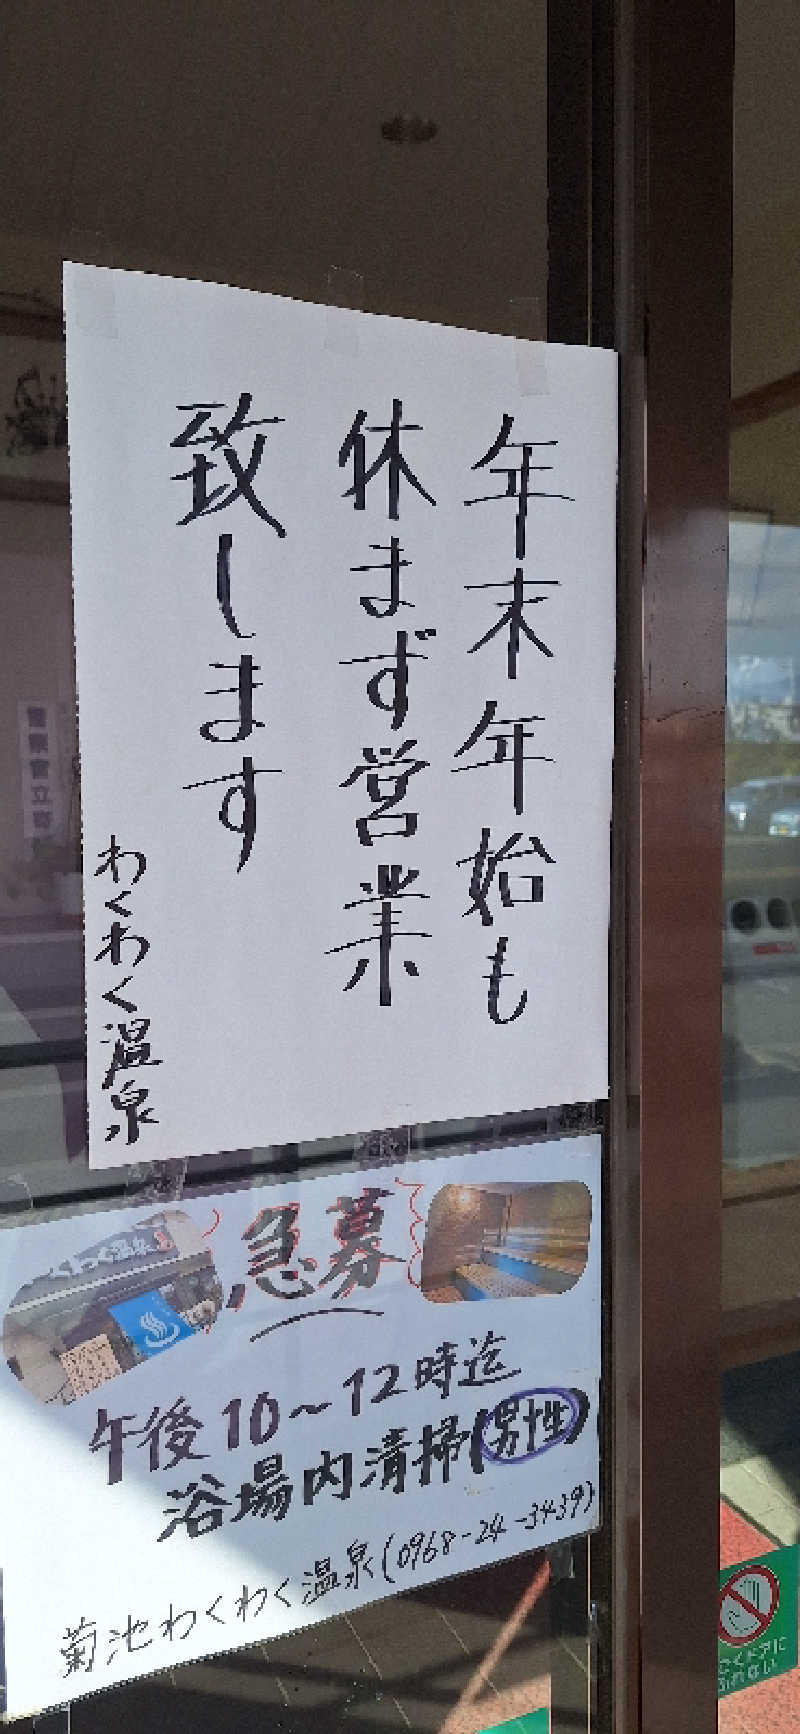 年末年始も
休まず営業
致します
わくわく温泉
急募
わくわく温泉
午後10~12時迄
浴場内清掃(男性)
菊池わくわく温泉(0968-24-3439)
ごくドアに
ふれない